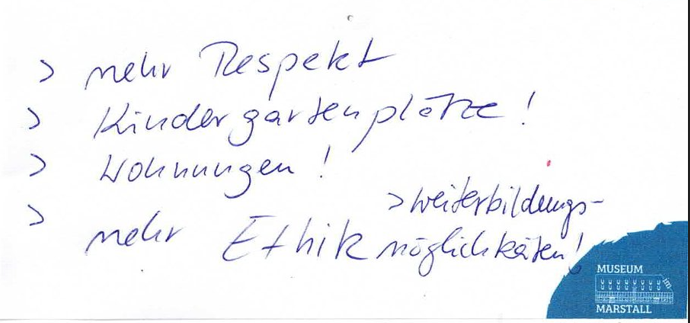 > mehr Respekt
> Kindergartenplätze!
> Wohnungen!
> mehr Ethik
> Weiterbildungs-
möglichkeiten!
MUSEUM
im
MARSTALL